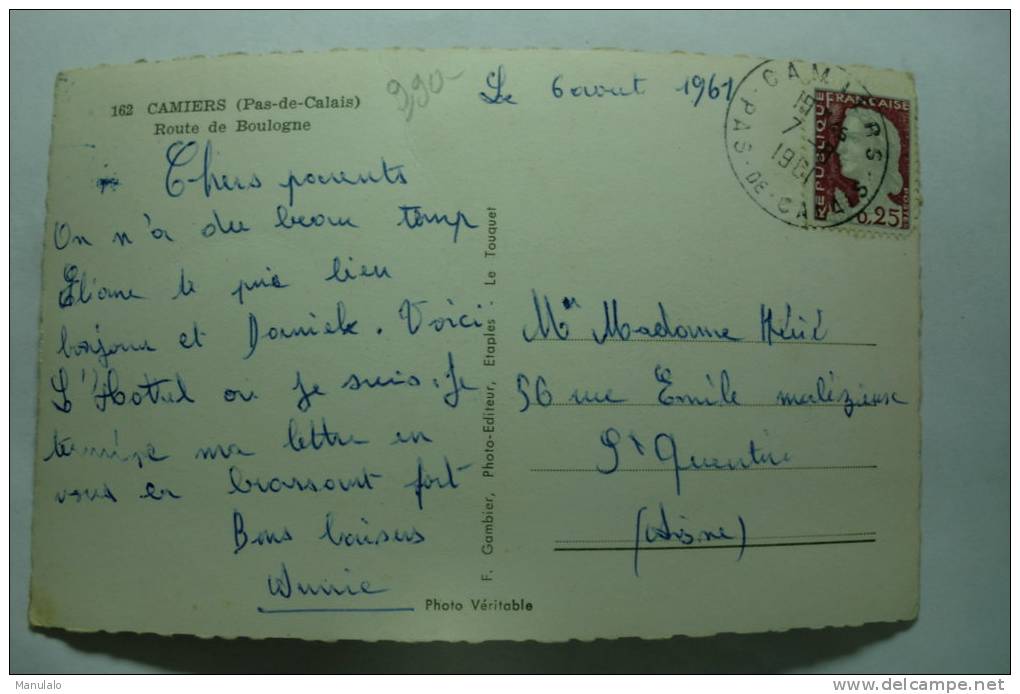 162 CAMIERS (Pas-de-Calais)
Route de Boulogne
9,90-
Le 6 aout 1961
CAMIERS
PAS-DE-CALAIS
19
7
1961
REPUBLIQUE FRANCAISE
POSTES
0,25
Chers parents
On n'a du beau temp
Eliane te
bien
bonjour et Daniele. Voici
L'Hottel ou Je suis. Je
termine ma lettre en
vous en brassant fort
Bons baisers
Annie
F. Gambier, Photo-Editeur, Etaples - Le Touquet
Photo Véritable
Mr Madame
56 rue Emile malézieux
St Quentin
(Aisne)
Manulalo